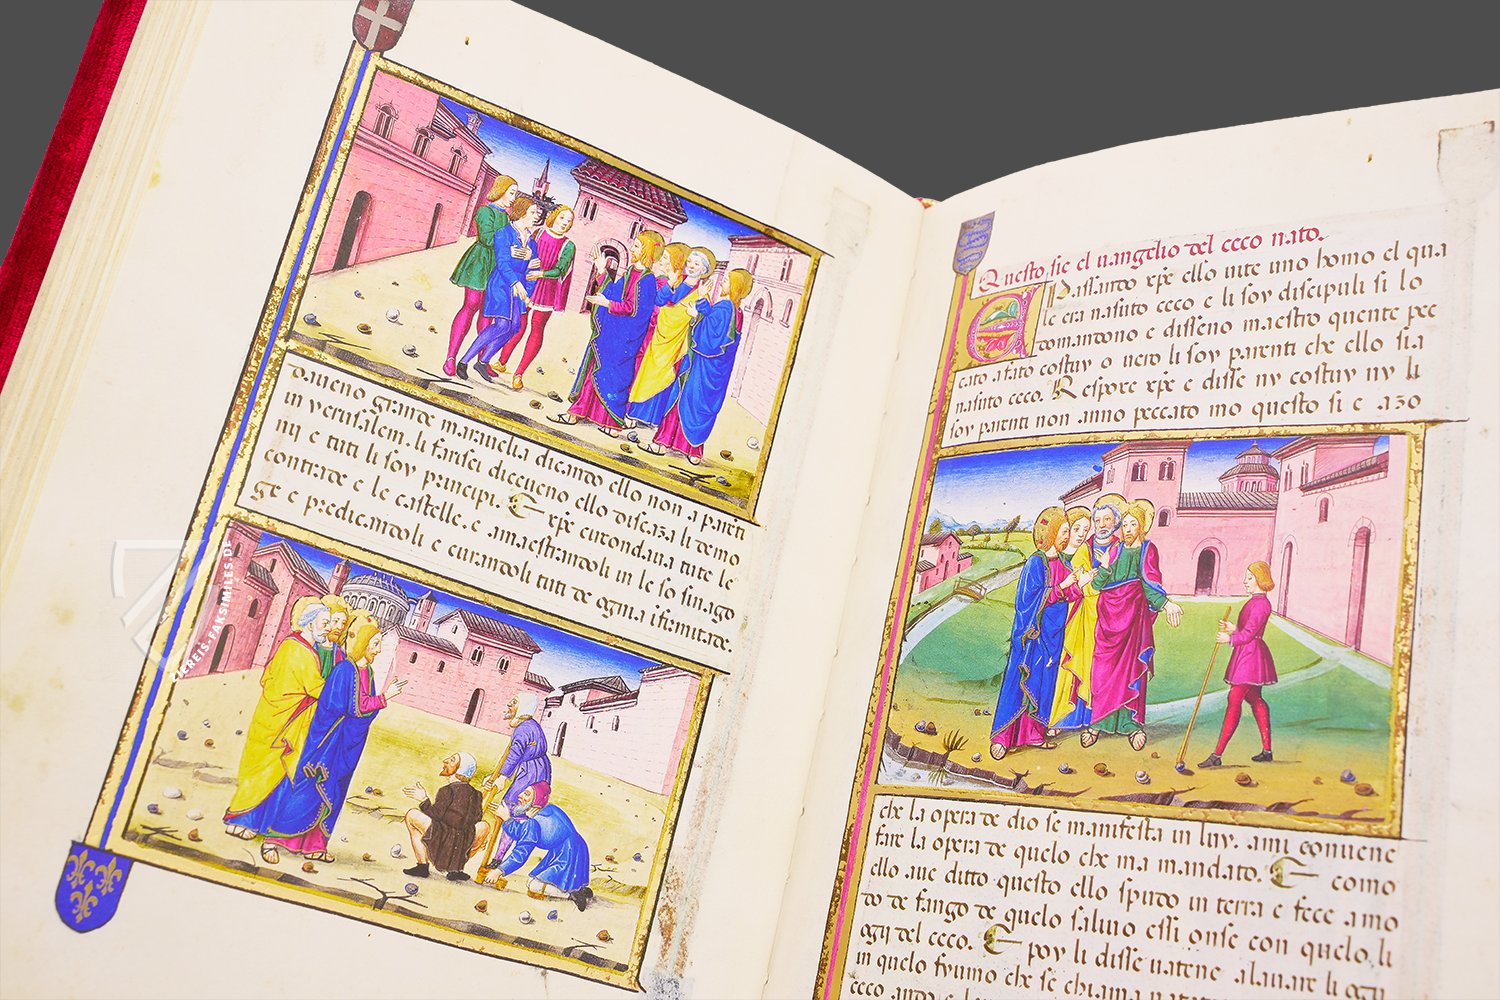 daueno grande marauelia dicando ello non a pareti
in yerusalem. li farisei diceueno ello discaza li demo
nij e tuti li soy principi. E xp̅e circondaua tute le
contrade e le castelle. e amaestrandoli in le so sinago
ge e predicandoli e curandoli tuti de ogni a ifirmitade.
ZIEREIS-FAKSIMILES.DE
Questo sie el uangelio del ceco nato.
Passando xp̅e ello uite uno homo el qua
le era nasuto ceco e li soy discipuli si lo
domandono e disseno maestro quente pec
cato a fato costuy o uero li soy parenti che ello sia
nasuto ceco. Respoxe xp̅e e disse ny costuy ny li
soy parenti non anno peccato mo questo si e azo
che la opera de dio se manifesta in luy. ami conuene
fare la opera de quelo che ma mandato. E como
ello aue ditto questo ello spudo in terra e fece amo
do de fango de quelo saliuo essi onse con quelo li
ogij del ceco. E poy li disse uatene alauare li ogij
in quelo fiumo che se chiama
ceco